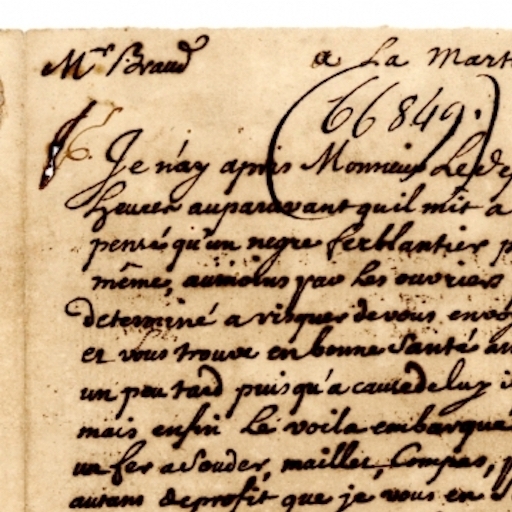 Mr Braud a La Mart
66849.
Je n'ay apris Monsieur Le de
heures auparavant quil mit a
pensé qu'un negre ferblantier p
même, aumoins par les ouvriers
determiné a risquer de vous envo
et vous trouve en bonne Santé au
un peu tard puisqu'a cause de luy i
mais enfin Le voila embarqué
un fer a Souder, maillet, Compas, p
autant de profit que je vous en S